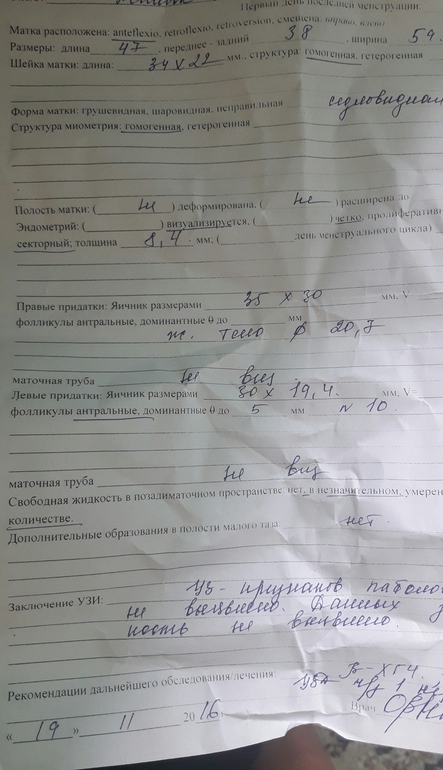 Первый день последней менструации:
Матка расположена: anteflexio, retroflexio, retroversion, смещена: вправо, влево
Размеры: длина 47, передне - задний 38, ширина 54.
Шейка матки: длина: 34 х 22 мм., структура: гомогенная, гетерогенная
Форма матки: грушевидная, шаровидная, неправильная седловидная
Структура миометрия: гомогенная, гетерогенная
Полость матки: ( не ) деформирована, ( не ) расширена до
Эндометрий: ( ) визуализируется, ( ) четко, пролифератив
секторный; толщина 8,4 мм; ( день менструального цикла)
Правые придатки: Яичник размерами 35 х 30 мм, V
фолликулы антральные, доминантные θ до мм
ж. тело ϕ 20,7
маточная труба не виз
Левые придатки: Яичник размерами 30 х 19,4. мм, V=
фолликулы антральные, доминантные θ до 5 мм N 10.
маточная труба не виз
Свободная жидкость в позадиматочном пространстве нет, в незначительном, умерен
количестве.
Дополнительные образования в полости малого таза нет.
Заключение УЗИ: УЗ - признаков патоло
не выявлено. Данных
ность не выявлено.
Рекомендации дальнейшего обследования/лечения: ХГЧ
Врач
« 19 » 11 2016